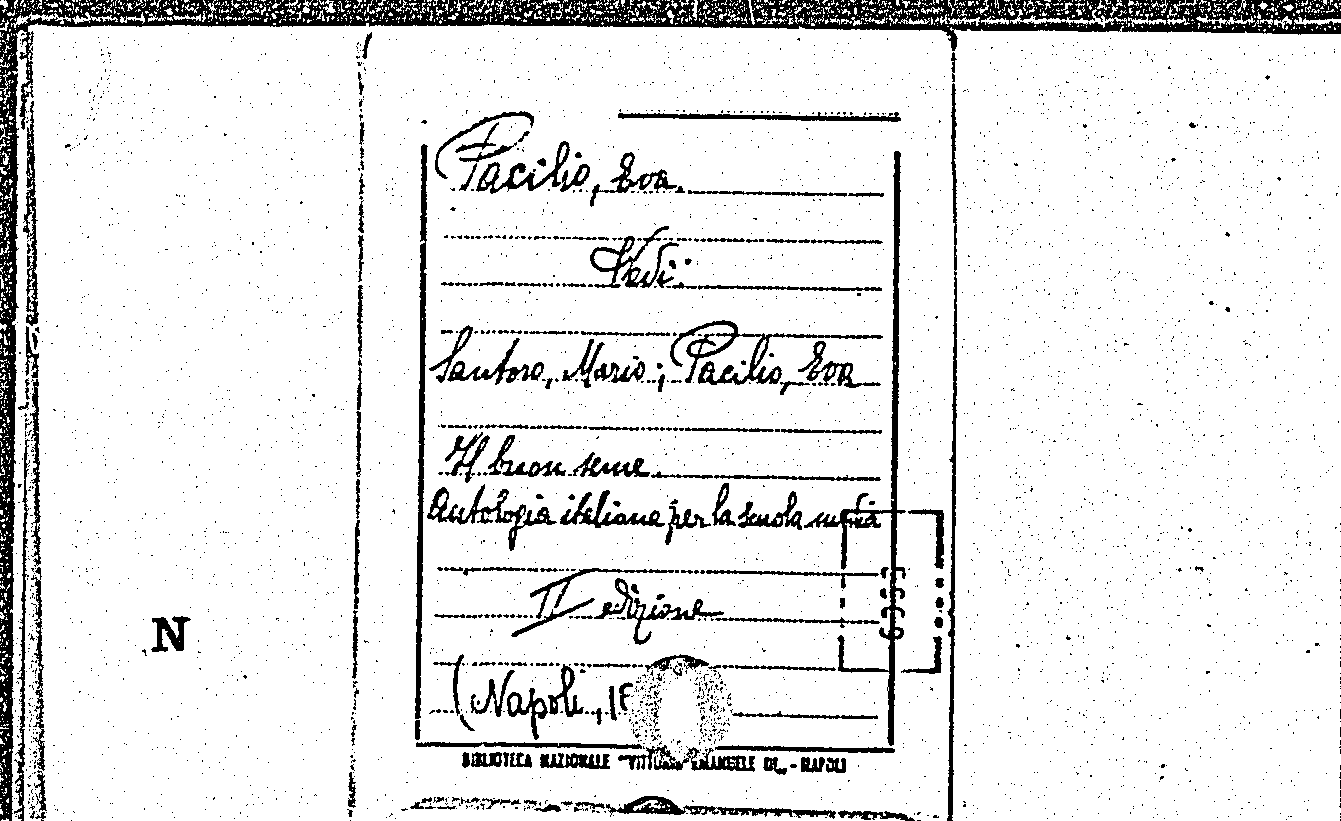 Pacilio, Eva.
Vedi:
Santoro, Mario; Pacilio, Eva
Il buon seme.
Antologia italiana per la scuola media
II edizione
(Napoli, 19
N
BIBLIOTECA NAZIONALE "VITTORIO EMANUELE III" - NAPOLI